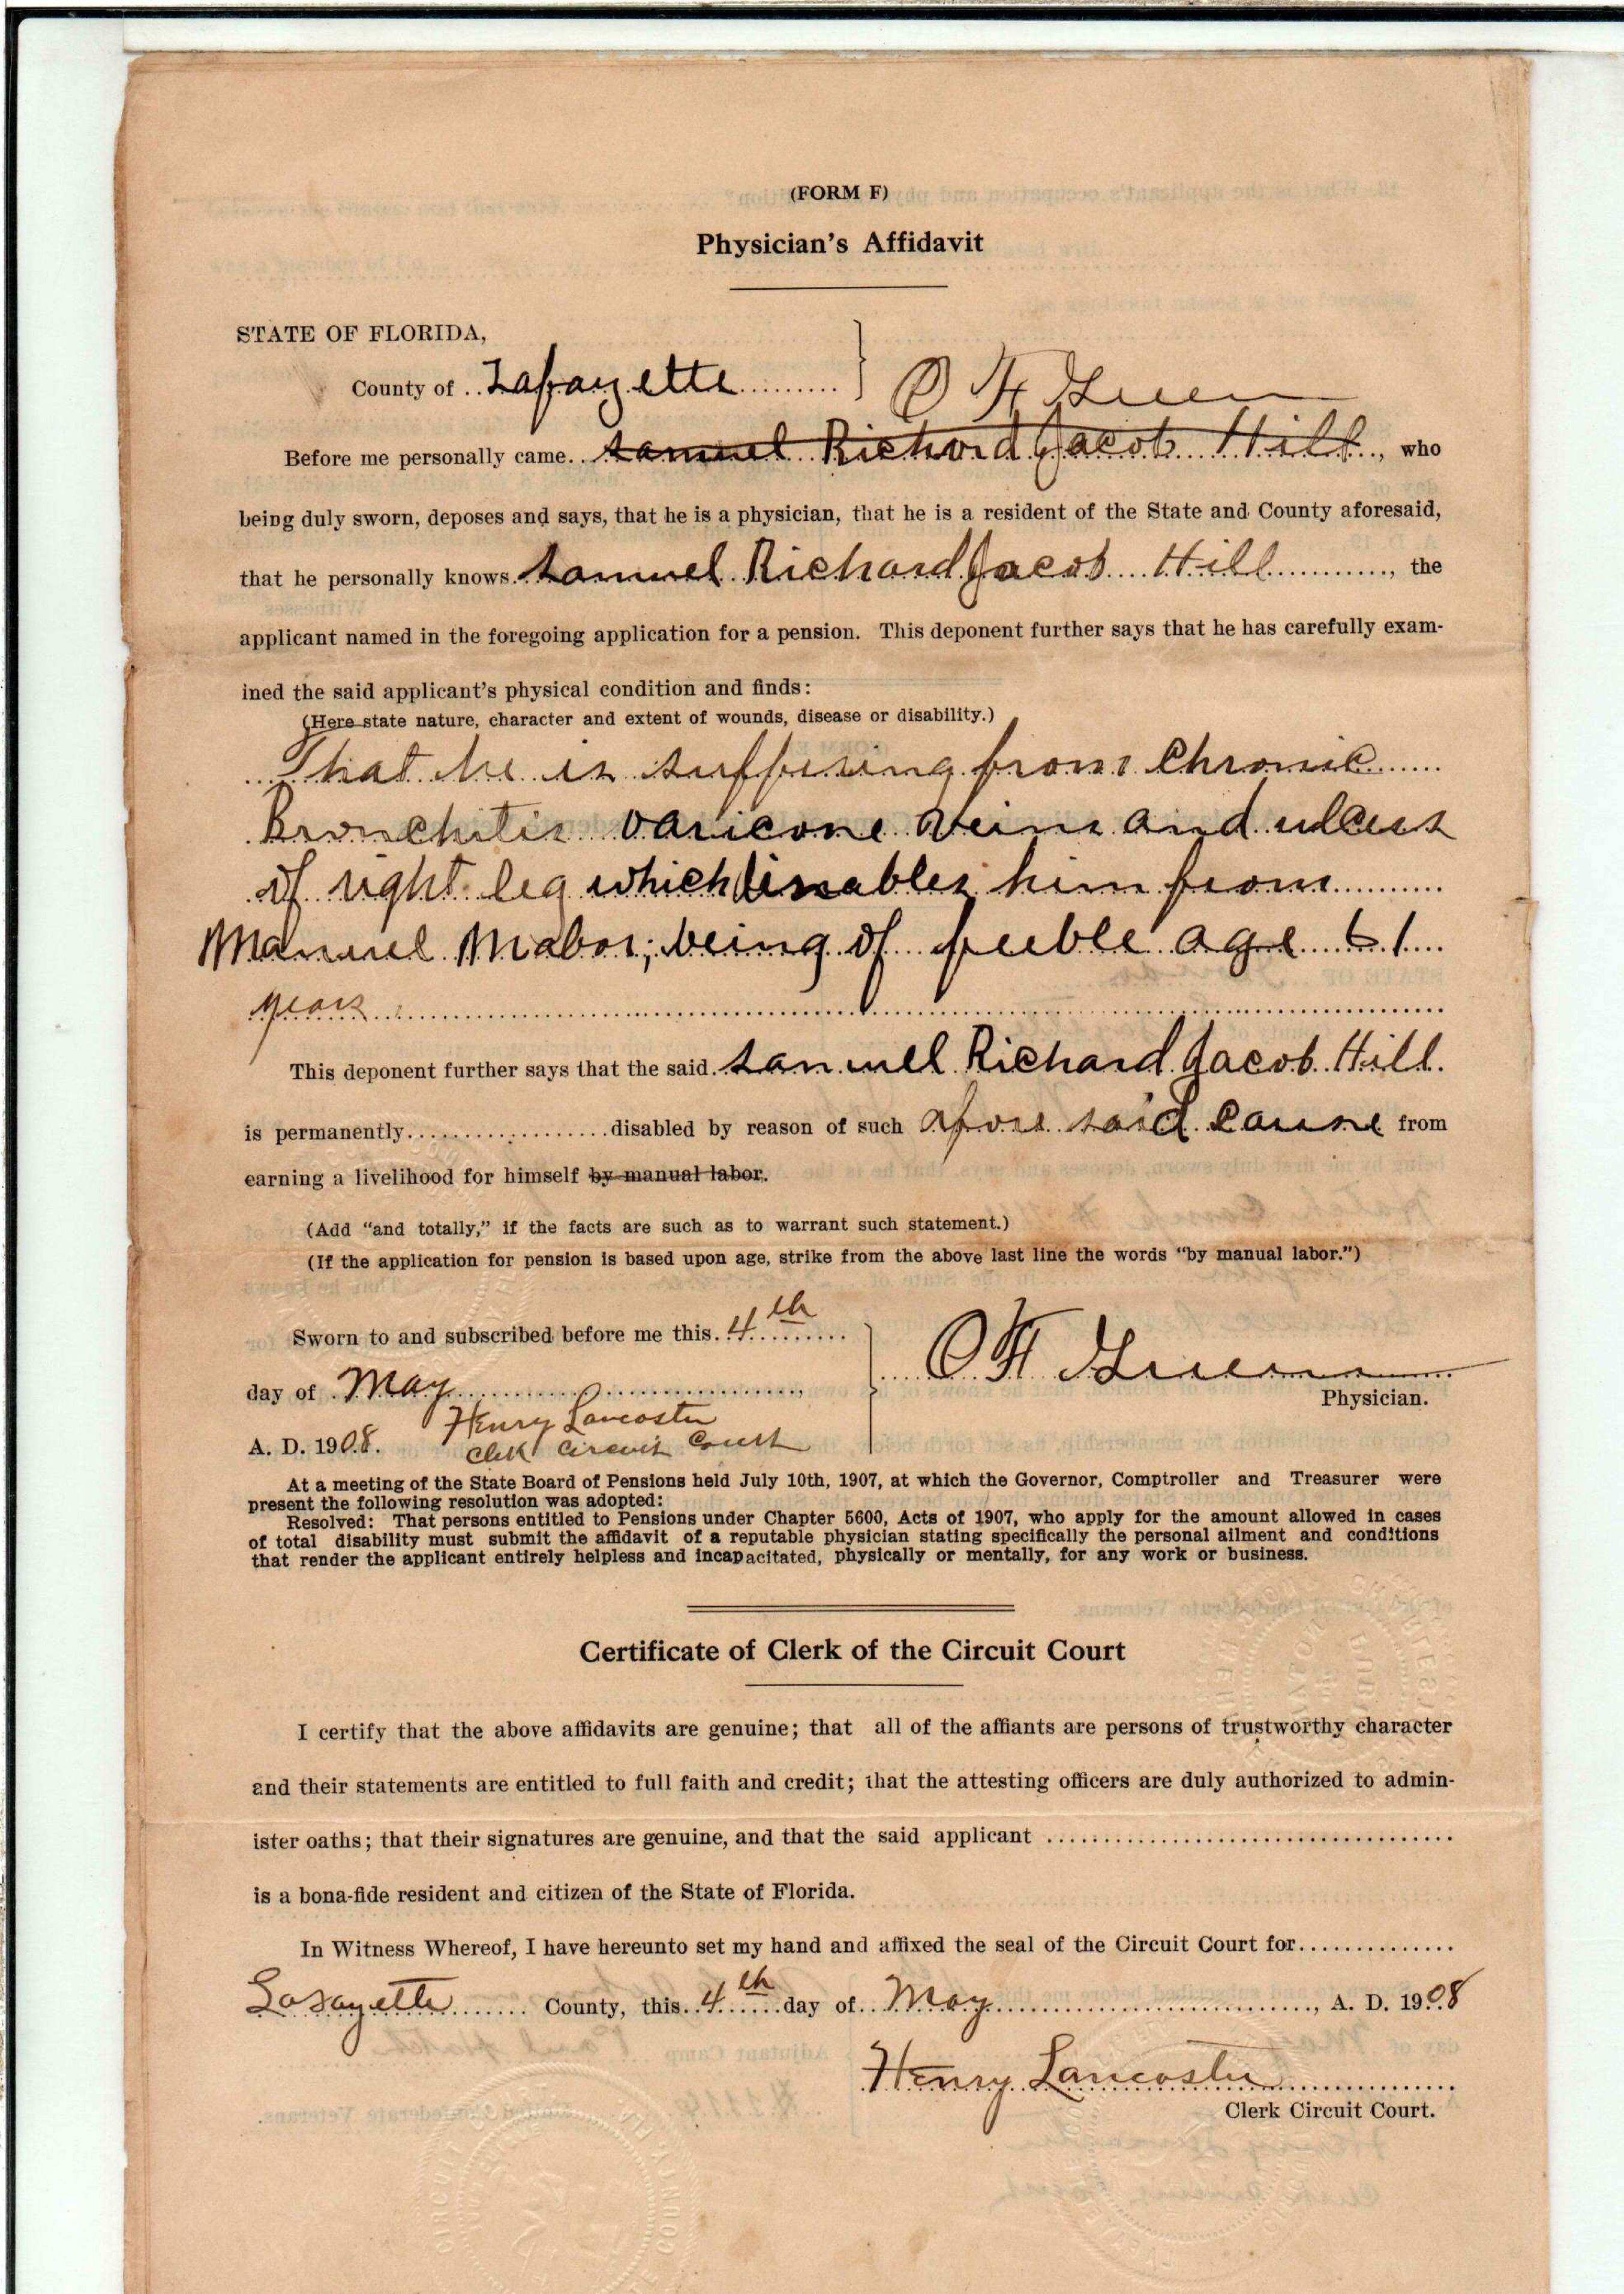 (FORM F)
Physician's Affidavit
STATE OF FLORIDA,
County of Lafayette } O F Green
Before me personally came Samuel Richard Jacob Hill, who
being duly sworn, deposes and says, that he is a physician, that he is a resident of the State and County aforesaid,
that he personally knows Samuel Richard Jacob Hill, the
applicant named in the foregoing application for a pension. This deponent further says that he has carefully exam-
ined the said applicant's physical condition and finds:
(Here state nature, character and extent of wounds, disease or disability.)
That he is suffering from Chronic
Bronchitis varicose veins and ulcers
of right leg which disables him from
Manuel Mabor; being of feeble age 61
years
This deponent further says that the said Samuel Richard Jacob Hill.
is permanently disabled by reason of such afore said cause from
earning a livelihood for himself by manual labor.
(Add "and totally," if the facts are such as to warrant such statement.)
(If the application for pension is based upon age, strike from the above last line the words "by manual labor.")
Sworn to and subscribed before me this 4th
day of May, O F Green
Physician.
Henry Lancaster
A. D. 1908. Clerk Circuit Court
At a meeting of the State Board of Pensions held July 10th, 1907, at which the Governor, Comptroller and Treasurer were
present the following resolution was adopted:
Resolved: That persons entitled to Pensions under Chapter 5600, Acts of 1907, who apply for the amount allowed in cases
of total disability must submit the affidavit of a reputable physician stating specifically the personal ailment and conditions
that render the applicant entirely helpless and incapacitated, physically or mentally, for any work or business.
Certificate of Clerk of the Circuit Court
I certify that the above affidavits are genuine; that all of the affiants are persons of trustworthy character
and their statements are entitled to full faith and credit; that the attesting officers are duly authorized to admin-
ister oaths; that their signatures are genuine, and that the said applicant
is a bona-fide resident and citizen of the State of Florida.
In Witness Whereof, I have hereunto set my hand and affixed the seal of the Circuit Court for
Lafayette County, this 4th day of May, A. D. 1908
Henry Lancaster
Clerk Circuit Court.